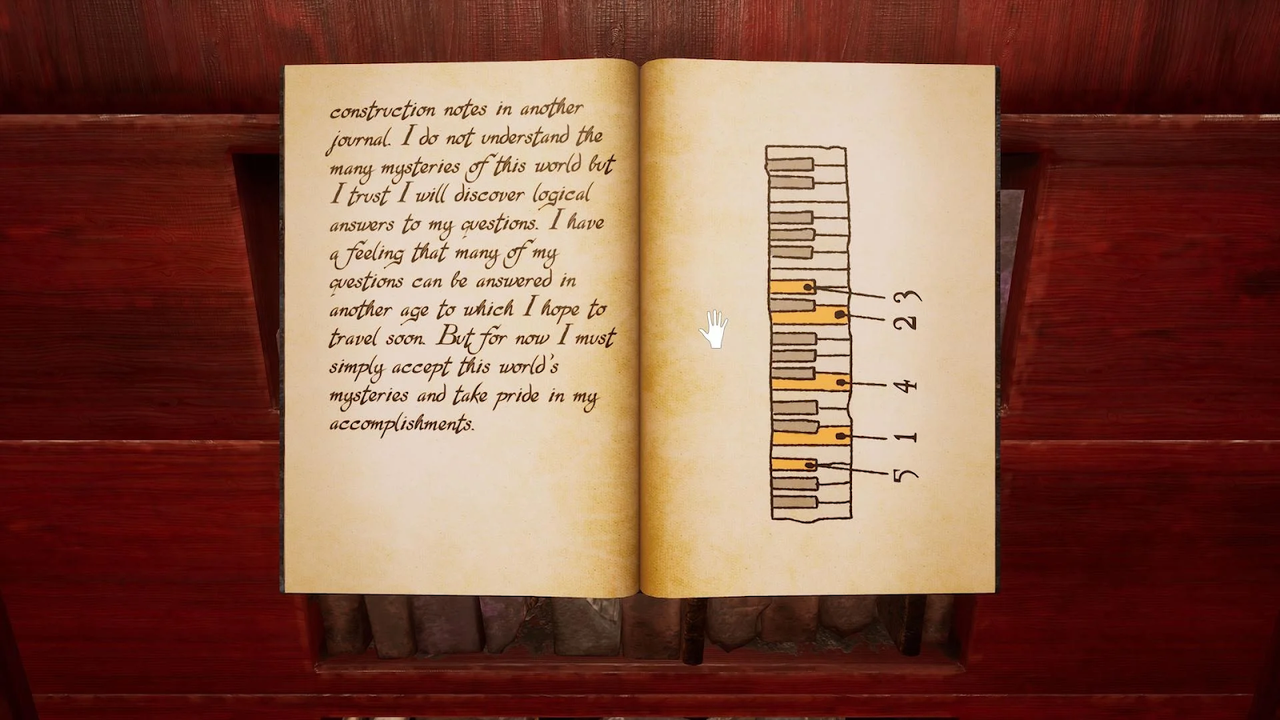 construction notes in another
journal. I do not understand the
many mysteries of this world but
I trust I will discover logical
answers to my questions. I have
a feeling that many of my
questions can be answered in
another age to which I hope to
travel soon. But for now I must
simply accept this world's
mysteries and take pride in my
accomplishments.
3
2
4
1
5